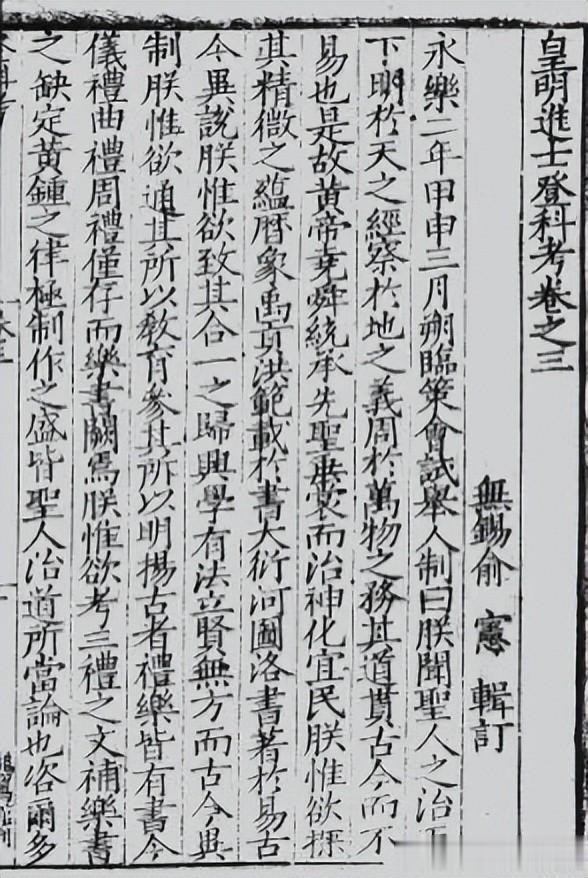 皇明進士登科考卷之三
無錫俞 憲 輯訂
永樂二年甲申三月朔臨策會試舉人制曰朕聞聖人之治
下明於天之經察於地之義周於萬物之務其道貫古今而不
易也是故黃帝堯舜統承先聖垂裳而治神化宜民朕惟欲探
其精微之蘊曆象禹貢洪範載於書大衍河圖洛書著於易古
今異說朕惟欲致其合一之歸興學有法立賢無方而古今異
制朕惟欲通其所以教育參其所以明揚古者禮樂皆有書今
儀禮曲禮周禮僅存而樂書闕焉朕惟欲考三禮之文補樂書
之缺定黃鍾之律極制作之盛皆聖人治道所當論也咨爾多